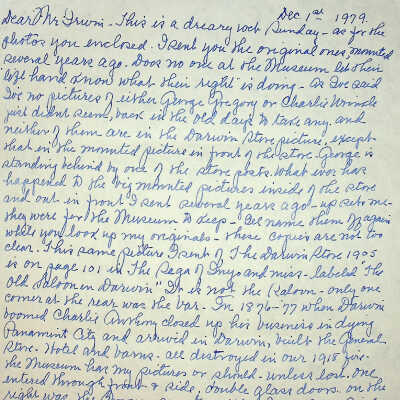 Dec 1st 1979.
Dear Mr Irwin - This is a dreary wet Sunday - as for the
photos you enclosed. I sent you the original ones, mounted
several years ago. Does no one at the Museum let their
left hand know what their right is doing - As I've said
I've no pictures of either George Gregory or Charlie Wrinkle
just didn't seem, back in the old days to take any. and
neither of them are in the Darwin Store picture, except
that in the mounted picture in front of the store. George is
standing behind by one of the store posts. What ever has
happened to the big mounted pictures inside of the store
and out - in front I sent several years ago - up sets me -
they were for the Museum to keep - name them again
while you look up my originals - these copies are not too
clear. This same picture I sent of The Darwin Store 1905
is on page 101 in The Saga of Inyo and miss-labeled "The
Old Saloon in Darwin" It is not the Saloon - only one
corner at the rear was the bar. In 1876-'77 when Darwin
boomed Charlie Anthony closed up his business in dying
Panamint City and arrived in Darwin, built the General
Store. Hotel and barns - all destroyed in our 1918 fire.
the Museum has my pictures or should - unless lost. One
entered through front & side, double glass doors. on the
right was the